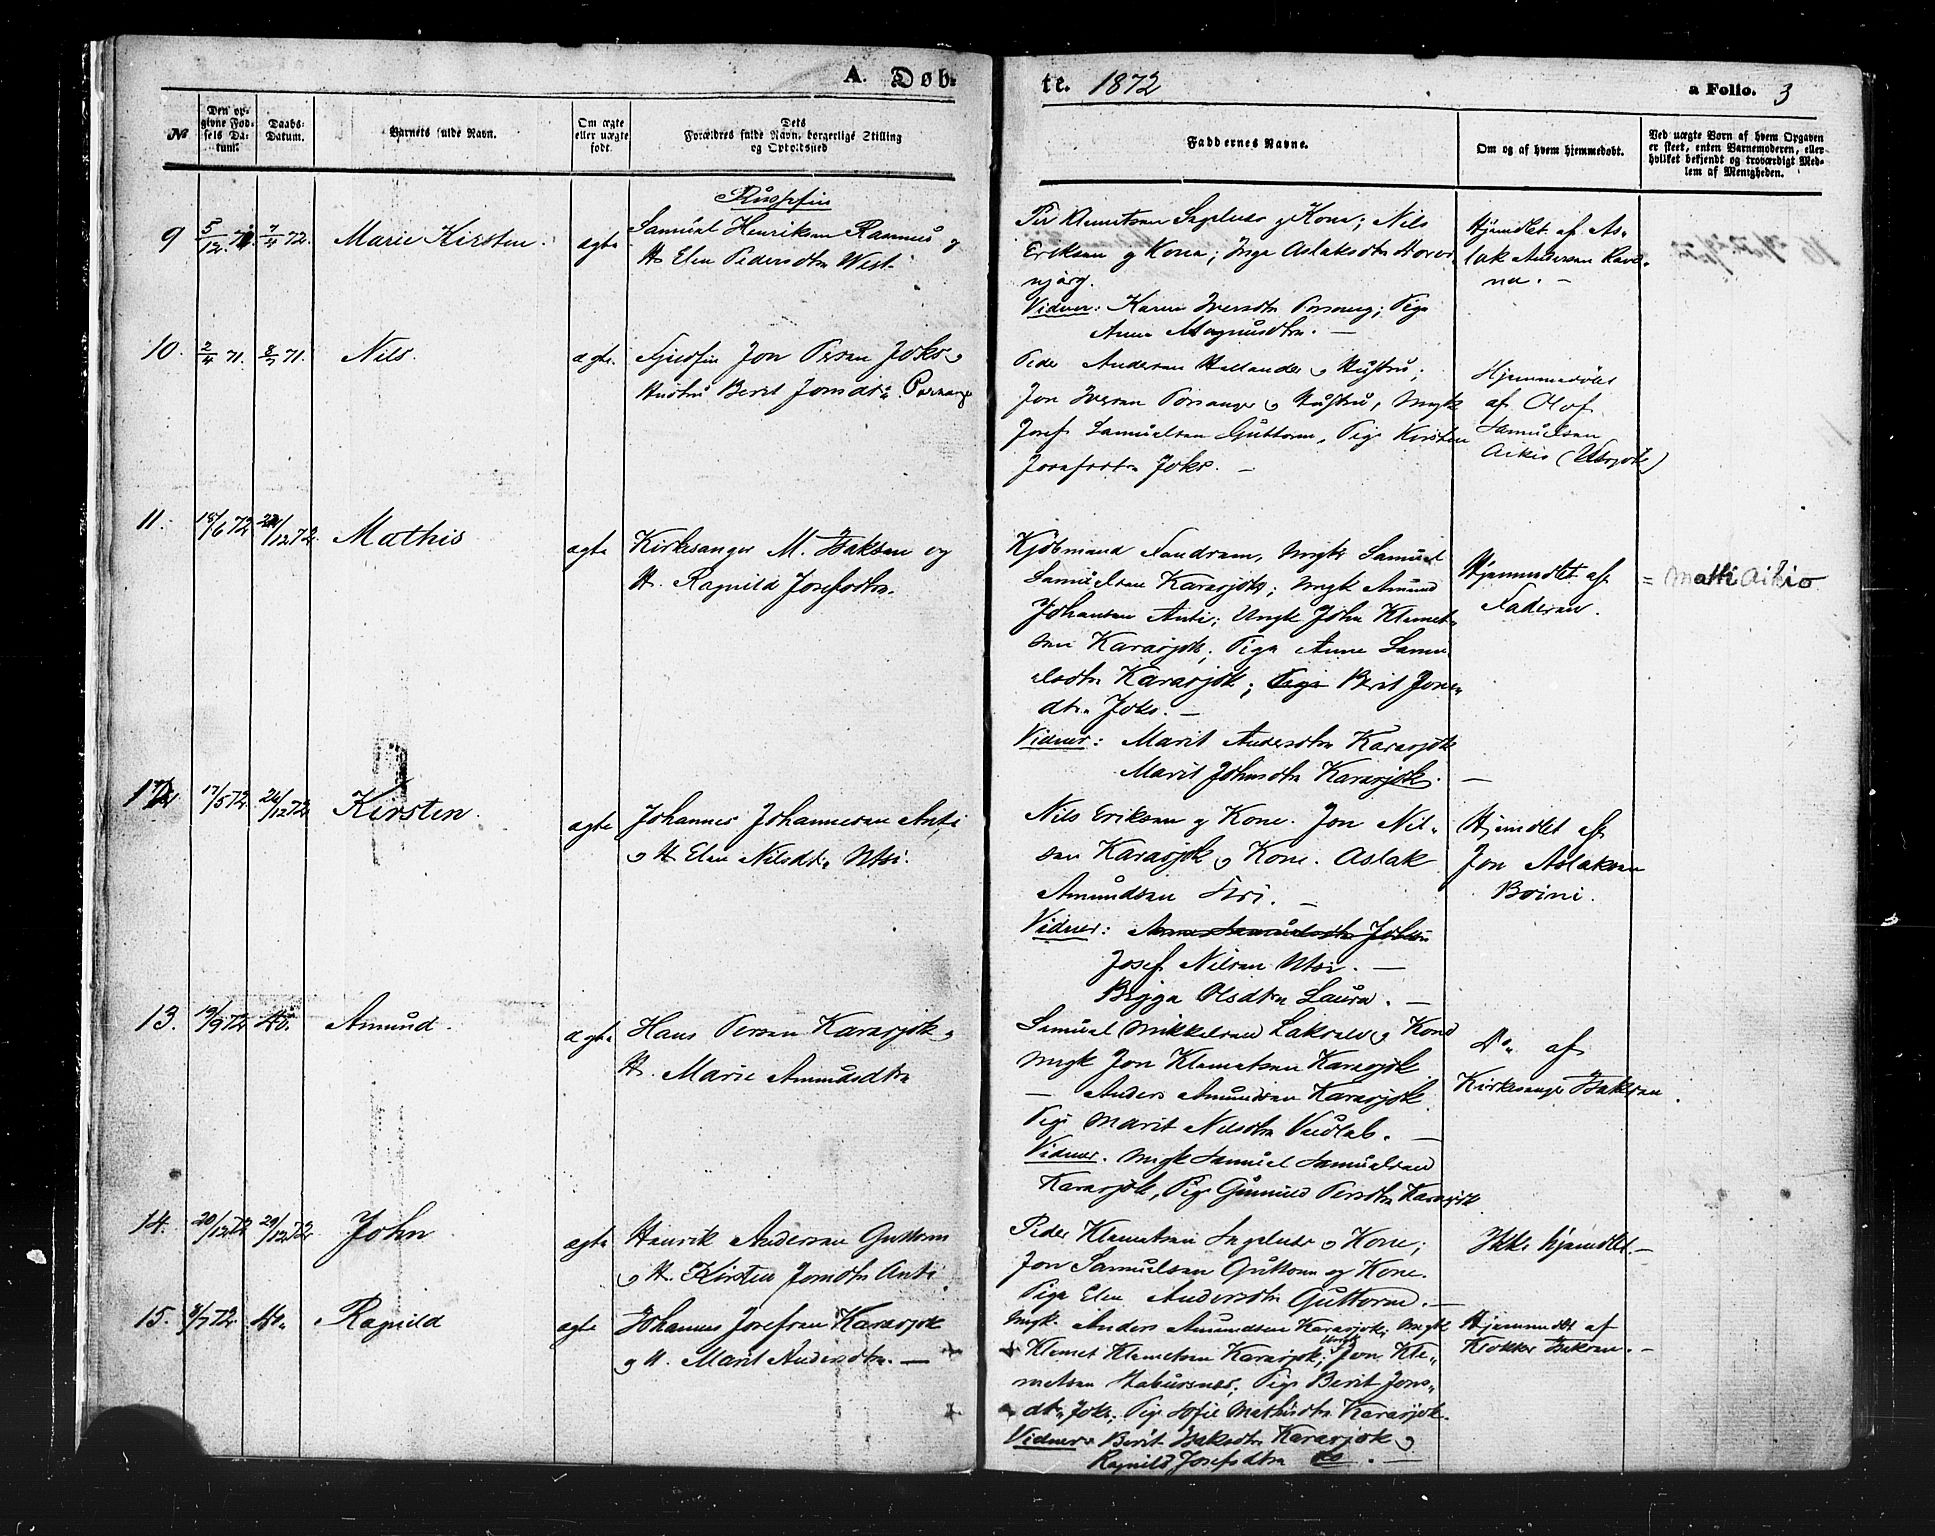 A. Døb-
te. 1872
a Folio. 3
No
Den op-
givne Fød-
sels Da-
tum.
Daabs-
Datum.
Barnets fulde Navn.
Om ægte
eller uægte
født.
Dets
Forældres fulde Navn, borgerlige Stilling
og Opholdssted
Faddernes Navne.
Om og af hvem hjemmedøbt.
Ved uægte Børn af hvem Opgaven
er skeet, enten Barnemoderen, eller
hvilket bekjendt og troværdigt Med-
lem af Menigheden.
9 5/12 71. 7/4 72. Marie Kirsten. ægte
Samuel Henriksen Rasmus og
H. Elen Pedersdtr West.
Per Klemetsen og Kone; Nils
Eriksen og Kone; Inga Aslaksdtr
njarg.
Vidner: Karen Iversdtr Porsang; Pige
Anne Magnusdtr. —
Hjemdbt af As-
lak Andersen Rave-
na. —
10. 2/4 71. 8/7 71. Nils. ægte.
Fjeldfin Jon Persen Joks og
Hustru Berit Jonsdtr Porsang
Peder Andersen Hallander og Hustru;
Jon Iversen Porsanger og Hustru, Ungk
Josef Samuelsen Guttorm, Pige Kirsten
Josefsdtr Joks. —
Hjemmedøbt
af Olof
Samuelsen
Aikio (Utsjok)
11. 18/6 72 /12 72. Mathis ægte
Kirkesanger M. Isaksen og
H. Ragnild Josefsdtr.
Kjøbmand Fandrem, Ungk Samuel
Samuelsen Karasjok; Ungk Amund
Johansen Anti; Ungk John Klemet-
sen Karasjok; Pige Anne Samu-
elsdtr Karasjok; Pige Berit Jons-
dtr Joks. —
Vidner: Marit Andersdtr Karasjok
Marit Johnsdtr Karasjok. —
Hjemmedbt af
Faderen.
= Matti Aikio
12 17/5 72 26/12 72 Kirsten. ægte
Johannes Johannesen Anti
og H Elen Nilsdtr Utsi.
Nils Eriksen og Kone. Jon Nil-
sen Karasjok og Kone. Aslak
Amundsen Siri. —
Vidner: Anne Samuelsdtr
Josef Nilsen Utsi. —
Brita Olsdtr Laura. —
Hjemdbt af
Jon Aslaksen
Boini.
13. 19/9 72 do. Amund. ægte
Hans Persen Karasjok og
H. Marie Amundsdtr
Samuel Mikkelsen og Kone
Ungk Jon Klemetsen Karasjok
— Anders Amundsen Karasjok.
Pige Marit Nilsdtr. —
Vidner. Ungk Samuel Samuelsen
Karasjok, Pige Gunnild Persdtr Karasjok.
Do. af
Kirkesanger Isaksen.
14. 20/12 72 29/12 72 John ægte
Henrik Andersen Guttorm
og H. Kirsten Jonsdtr Anti
Peder Klemetsen og Kone;
Jon Samuelsen Guttorm og Kone.
Pige Elen Andersdtr Guttorm. —
Ikke hjemdbt. —
15. /7 72. do. Ragnild ægte
Johannes Josefsen Karasjok
og H. Marit Andersdtr. —
Ungk. Anders Amundsen Karasjok; Ungk
Klemet Klemetsen Karasjok; Ungk Jon Kle-
metsen Pige Berit Jons-
dtr Joks; Pige Sofie Mathisdtr Karasjok.
Vidner Berit Isaksdtr Karasjok og
Ragnild Josefsdtr do. —
Hjemmedbt af
Klokker Isaksen. —